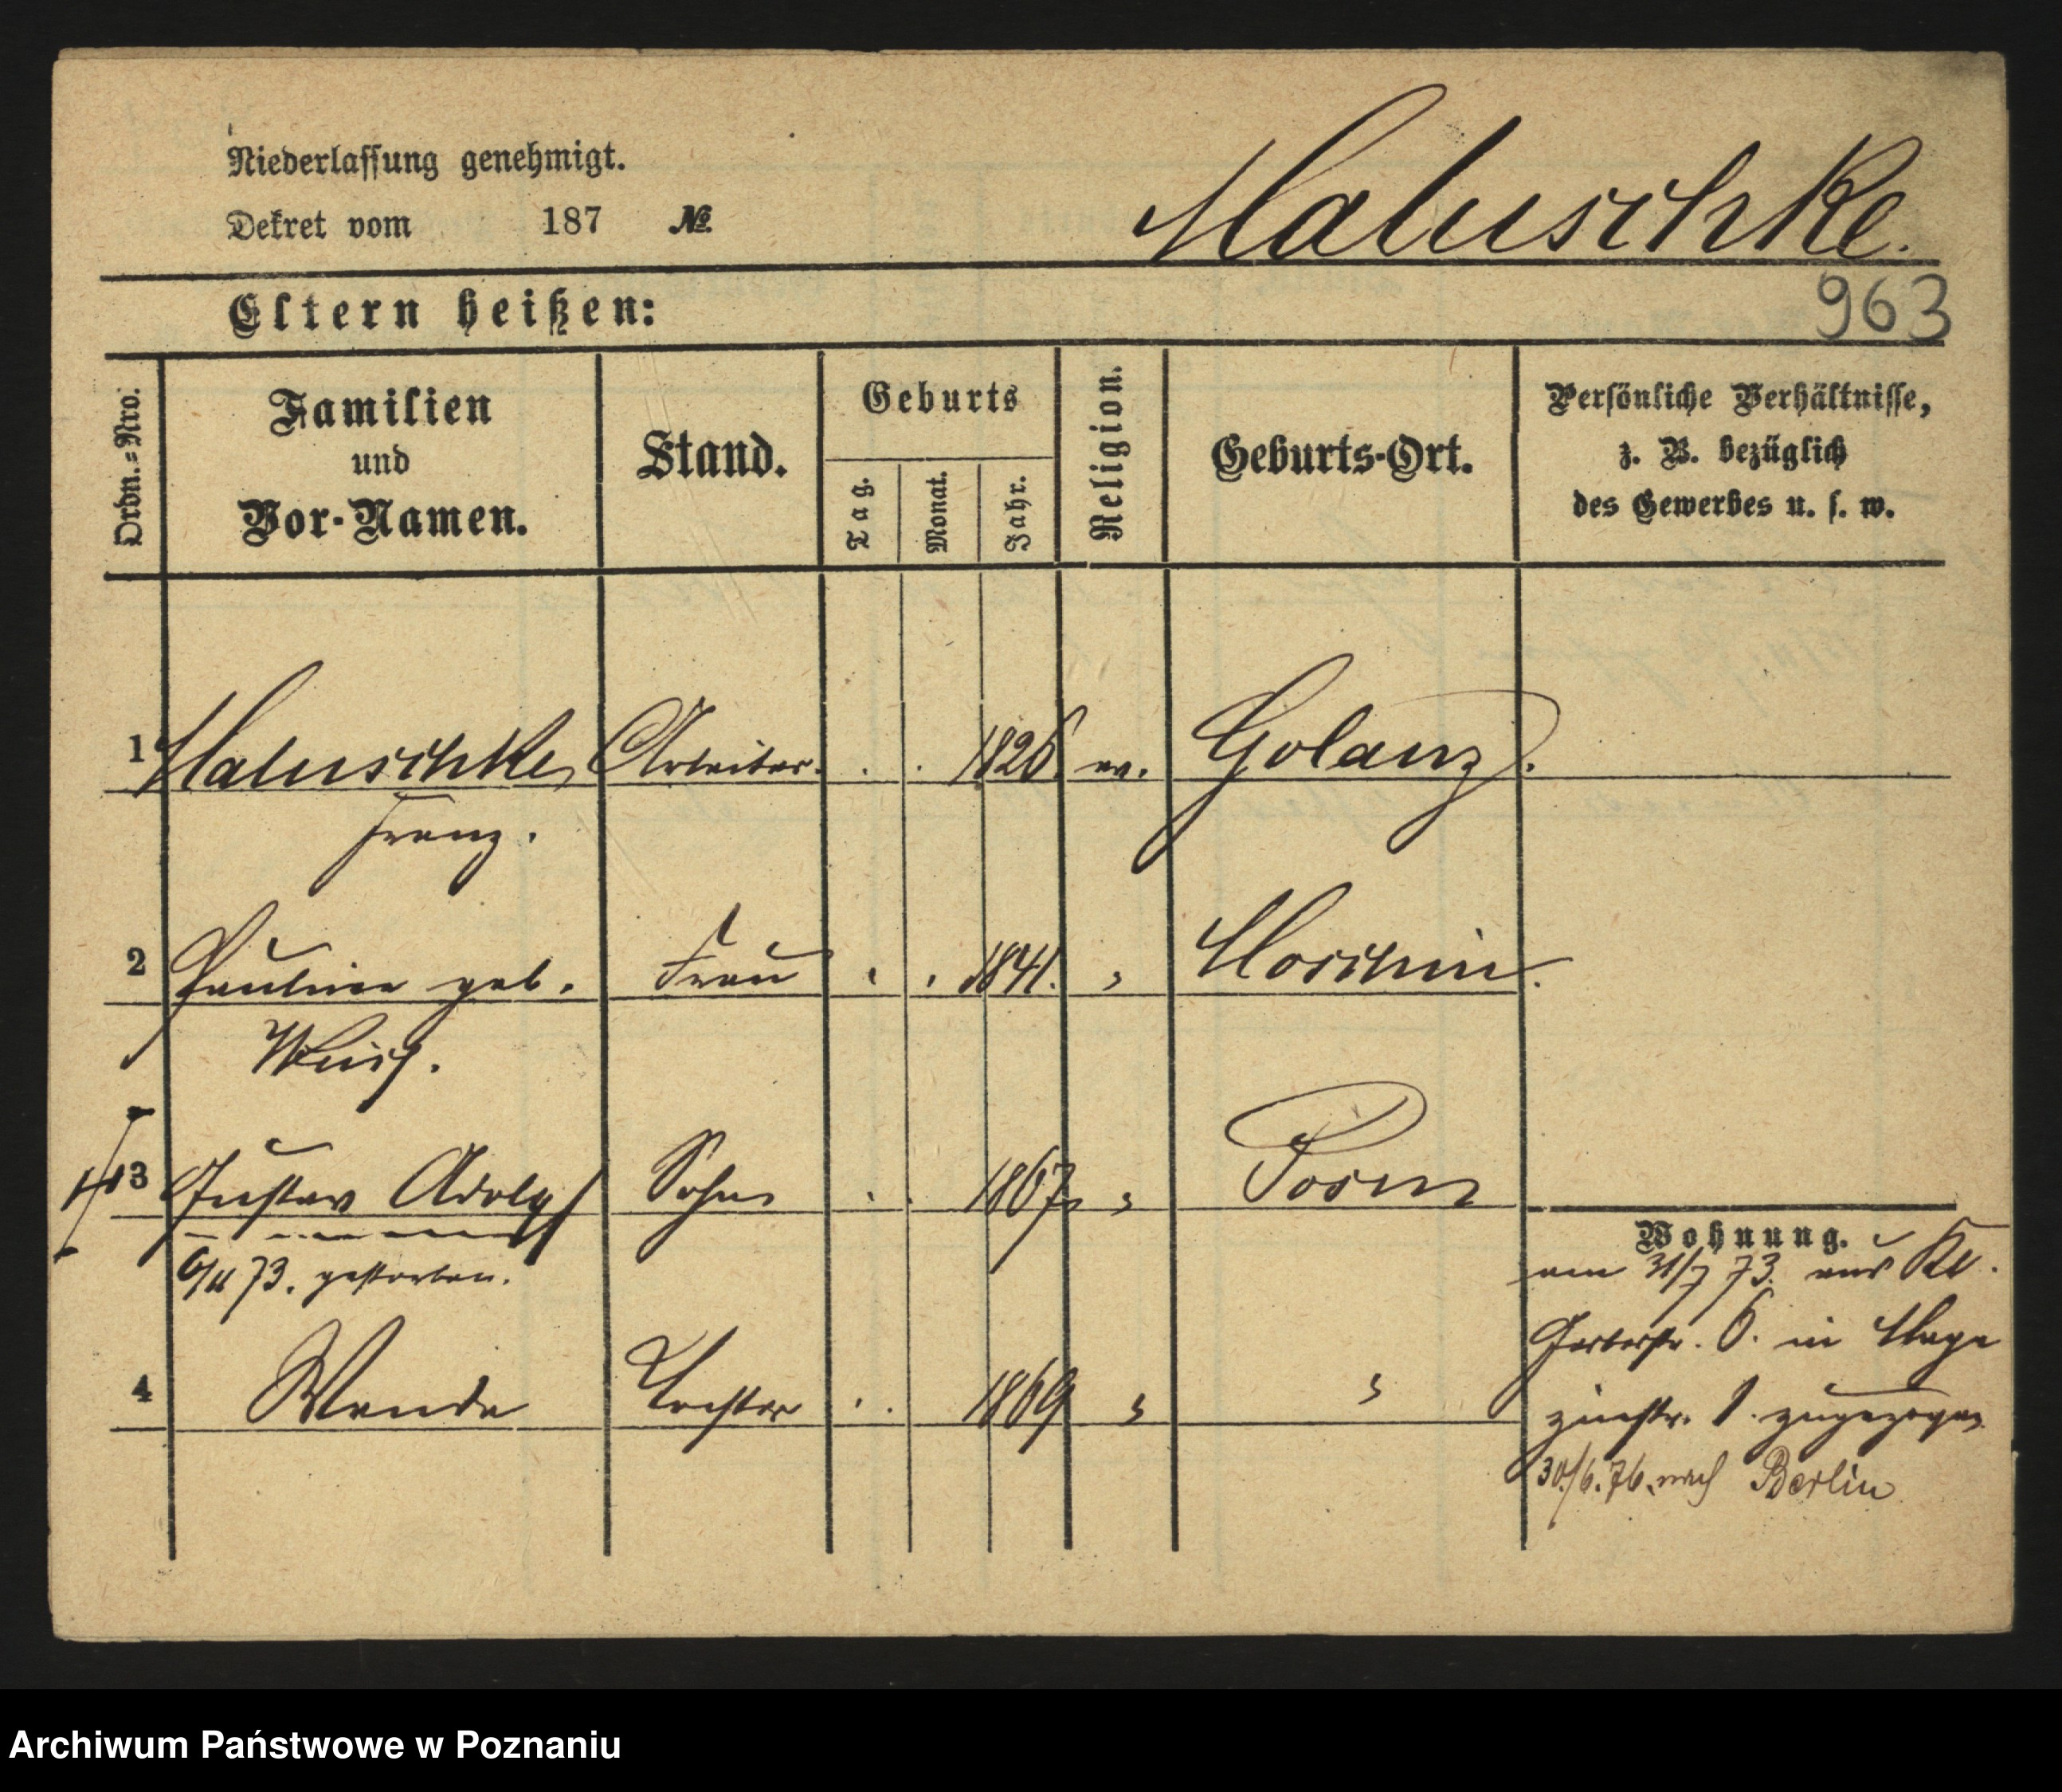 Niederlassung genehmigt.
Dekret vom 187 №
Maluschke.
963
Eltern heißen:
Ordn.=Nro.
Familien
und
Vor-Namen.
Stand.
Geburts
Tag.
Monat.
Jahr.
Religion.
Geburts-Ort.
Persönliche Verhältnisse,
z. B. bezüglich
des Gewerbes u. s. w.
1 Maluschke Arbeiter. 1826. ev. Golanz.
Franz.
2 Pauline geb. Frau 1841. " Moschin.
13 Gustav Adolph Sohn 1867 " Posen
6/11 73. gestorben.
4 Wanda Tochter 1869 " "
Wohnung.
am 31/7 73. aus Kl.
Gerberstr. 6. in Maga
zinstr. 1. zugezogen
30./6.76. nach Berlin
Archiwum Państwowe w Poznaniu